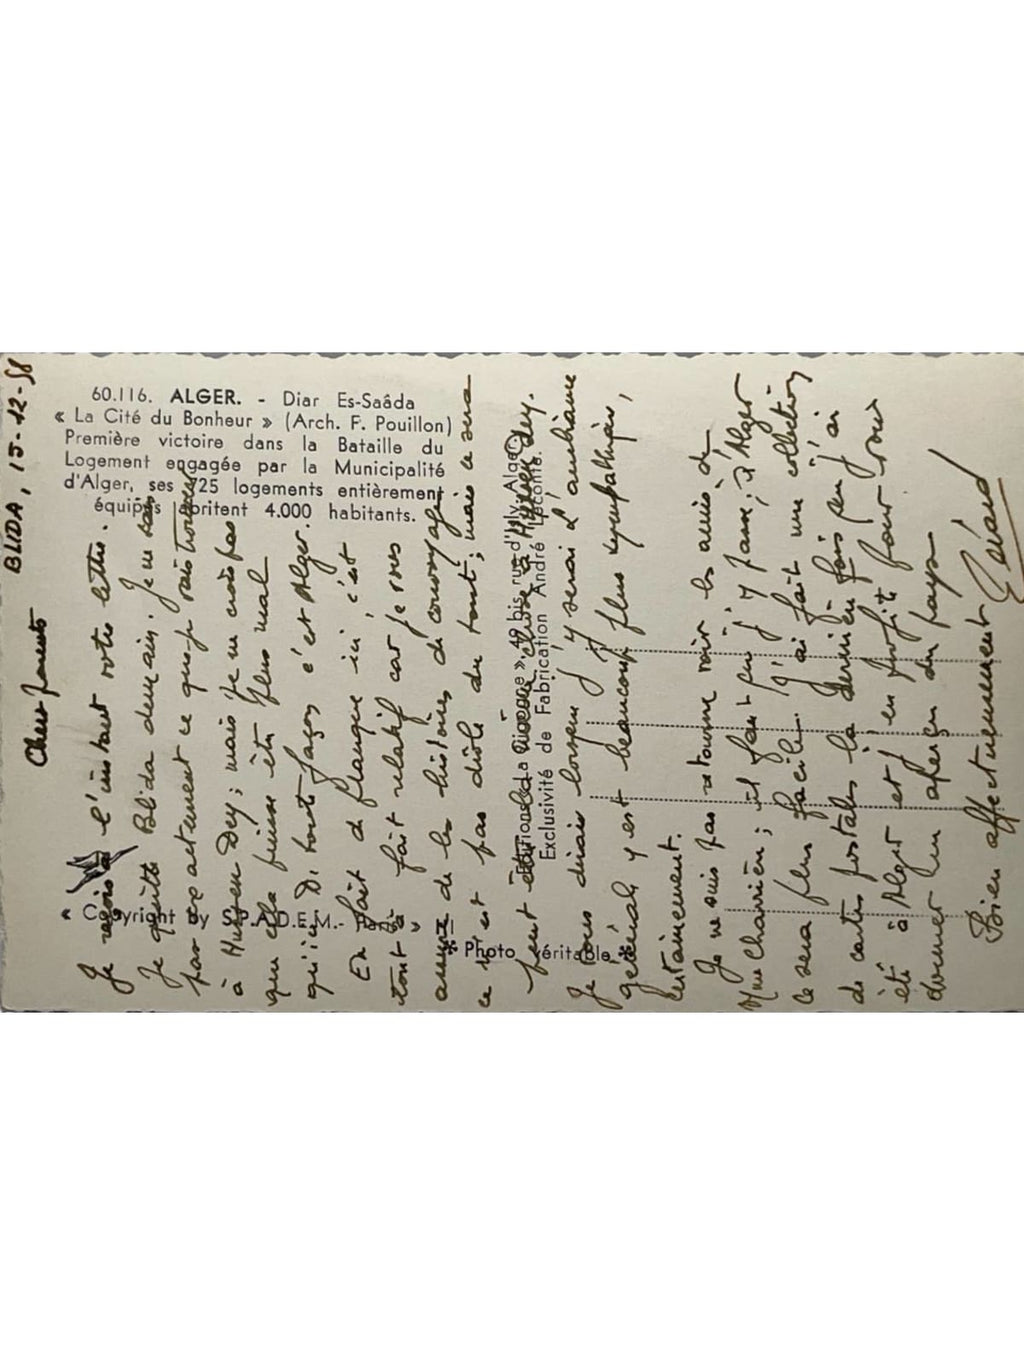 60.116. ALGER. - Diar Es-Saâda
« La Cité du Bonheur » (Arch. F. Pouillon)
Première victoire dans la Bataille du
Logement engagée par la Municipalité
d'Alger, ses 725 logements entièrement
équipés abritent 4.000 habitants.
« Copyright by S.P.A.D.E.M.- Paris »
* Photo véritable *
Editions La Cigogne » 49 bis rue d'Isly. Alger
Exclusivité de Fabrication André Leconte.
BLIDA, 15-12-58
Chers parents
Je reçois à l'instant votre lettre.
Je quitte Blida demain. Je ne sais
pas exactement ce que je vais trouver
à Hussein Dey; mais je ne crois pas
que cela puisse être plus mal
qu'ici. De toute façon c'est Alger.
En fait de planque ici, c'est
tout à fait relatif car je vous
de les histoires de convoyage.
ce n'est pas drôle du tout; mais ce sera
peut être la même chose à Hussein Dey.
Je vous dirais lorsque j'y serai l'ambiance
générale y est beaucoup plus sympathique,
certainement.
Je ne suis pas retourné voir les amis de
Mme Charrière; il faut que j'y passe; d'Alger
ce sera plus facile. J'ai fait une collection
de cartes postales la dernière fois que j'ai
été à Alger et j'en profite pour vous
donner un aperçu du pays
Bien affectueusement Gérard